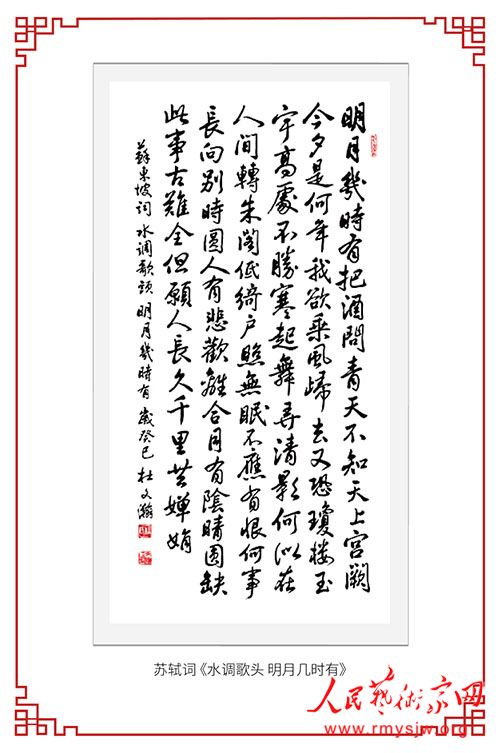 明月幾時有把酒問青天不知天上宫闕
今夕是何年我欲乘風歸去又恐瓊楼玉
宇高處不勝寒起舞弄清影何似在
人间轉朱阁低绮户照無眠不應有恨何事
長向别時圆人有悲歡離合月有陰晴圆缺
此事古難全但願人長久千里共婵娟
蘇東坡词 水调歌頭 明月幾時有 歲癸巳 杜文瀚
苏轼词《水调歌头 明月几时有》
人民藝術家网
www.rmysjw.org